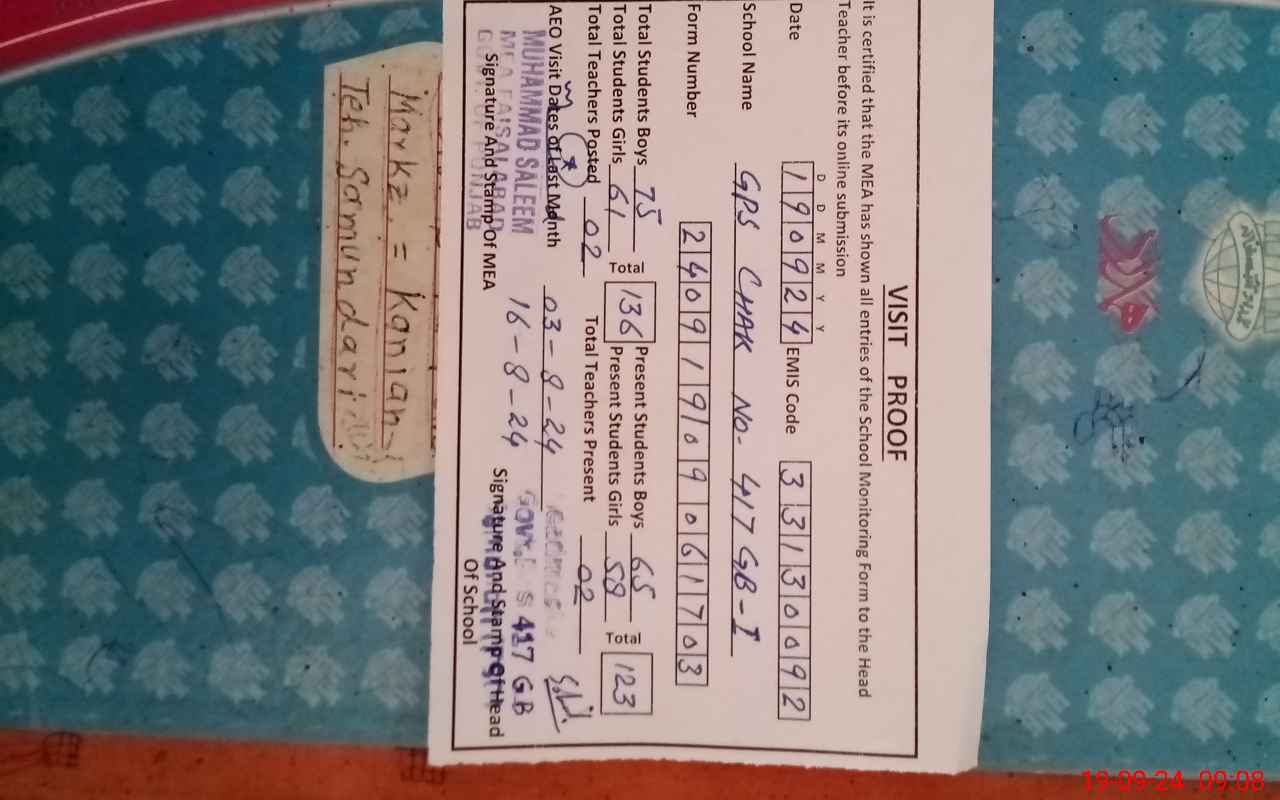 VISIT PROOF
It is certified that the MEA has shown all entries of the School Monitoring Form to the Head
Teacher before its online submission
D D M M Y Y
Date 190924 EMIS Code 33130092
School Name GPS CHAK NO- 417 GB-I
Form Number 2409190906 1703
Total Students Boys 75 Total 136 Present Students Boys 65 Total 123
Total Students Girls 61 Present Students Girls 58
Total Teachers Posted 02 Total Teachers Present 02
AEO Visit Dates of Last Month 03-8-24
16-8-24
MUHAMMAD SALEEM
MEA FAISALABAD
GOVT. OF PUNJAB
Signature And Stamp Of MEA
417 GB
Signature And Stamp Of Head
Of School
Markz = Kanian
Teh. Samundari
19-09-24 09:08